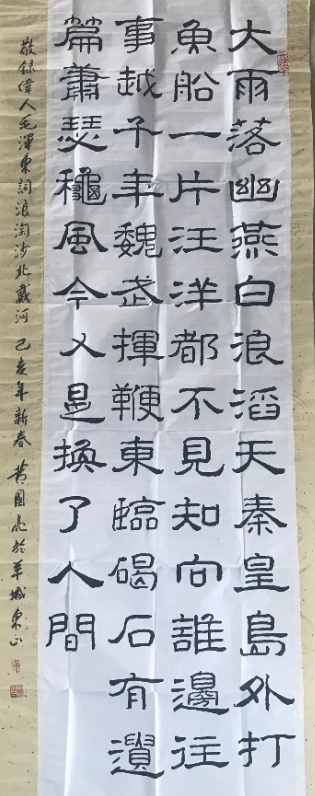 大雨落幽燕白浪滔天秦皇島外打
魚船一片汪洋都不見知向誰邊往
事越千年魏武揮鞭東臨碣石有遺
篇蕭瑟龝風今又是換了人間
敬録偉人毛澤東詞浪淘沙北戴河 己亥年新春 黄國亮於羊城東山